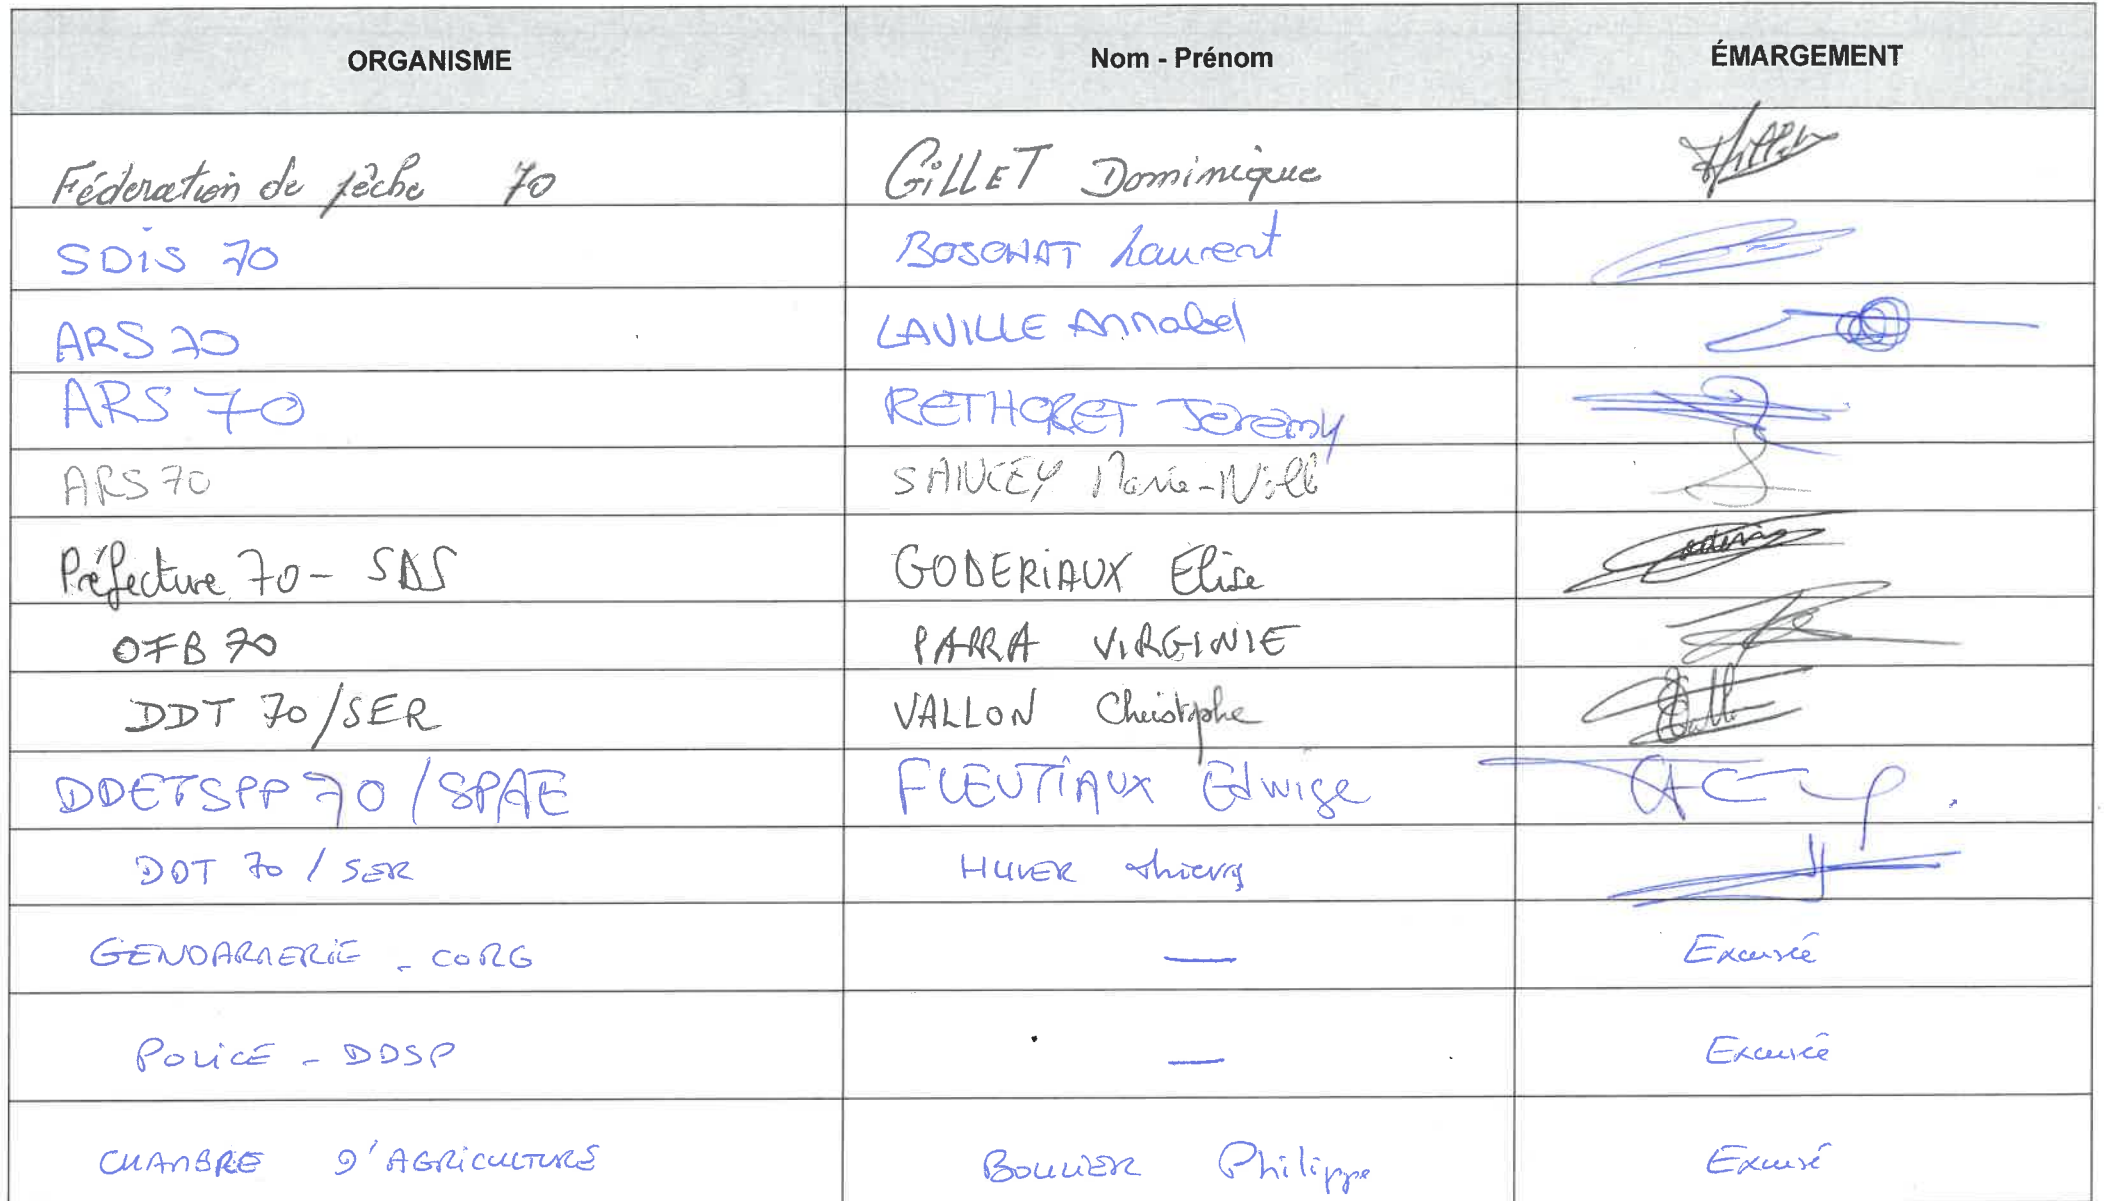 ORGANISME Nom - Prénom ÉMARGEMENT
Féderation de pêche 70 GILLET Dominique
SDIS 70 BOSONAT Laurent
ARS 70 LAVILLE Annabel
ARS 70 RETHORET Jeremy
ARS 70 SANCEY Marie-Noëlle
Préfecture 70 - SDS GODERIAUX Elise
OFB 70 PARRA VIRGINIE
DDT 70 / SER VALLON Christophe
DDETSPP 70 / SPAE FLEUTIAUX Edwige
DDT 70 / SER HUVER Thierry
GENDARMERIE - CORG — Excusée
POLICE - DDSP — Excusée
CHAMBRE D'AGRICULTURE BOULIER Philippe Excusé